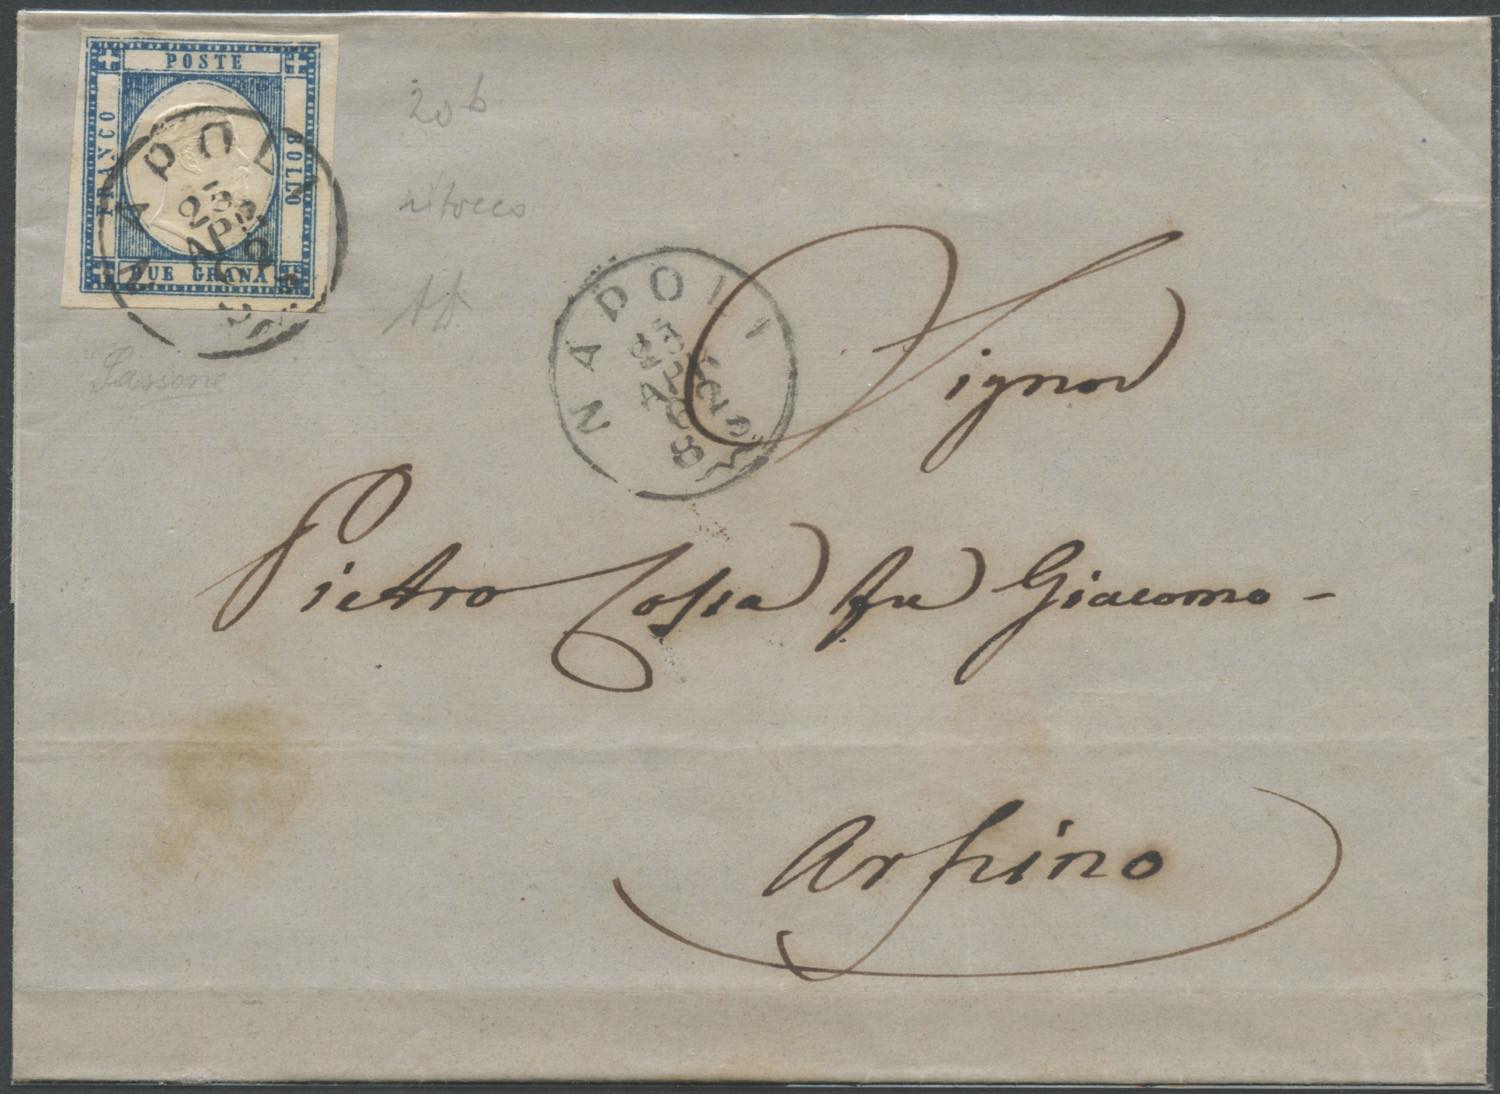 POSTE
FRANCO
BOLLO
DUE GRANA
NAPOLI
23
APR
62
20 b
ritocco
Sassone
NAPOLI
23
APR
62
Signor
Pietro Cossa fu Giacomo -
Arpino